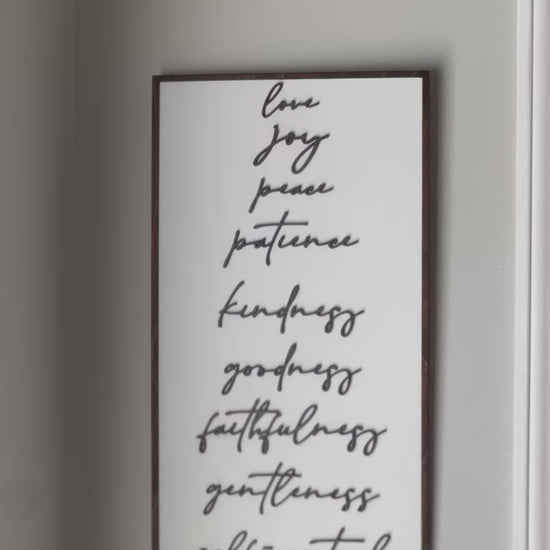 love
joy
peace
patience
kindness
goodness
faithfulness
gentleness